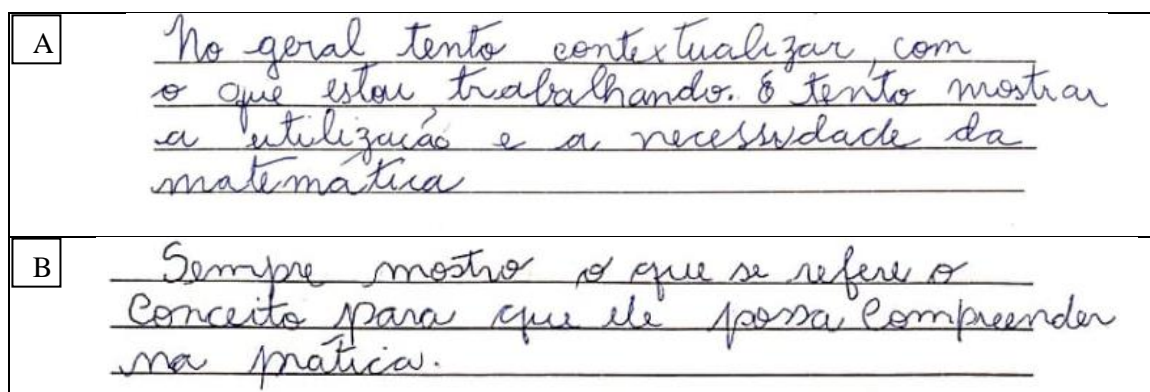 A
No geral tento contextualizar, com
o que estou trabalhando. E tento mostrar
a utilização e a necessidade da
matemática
B
Sempre mostro o que se refere o
Conceito para que ele possa Compreender
na prática.